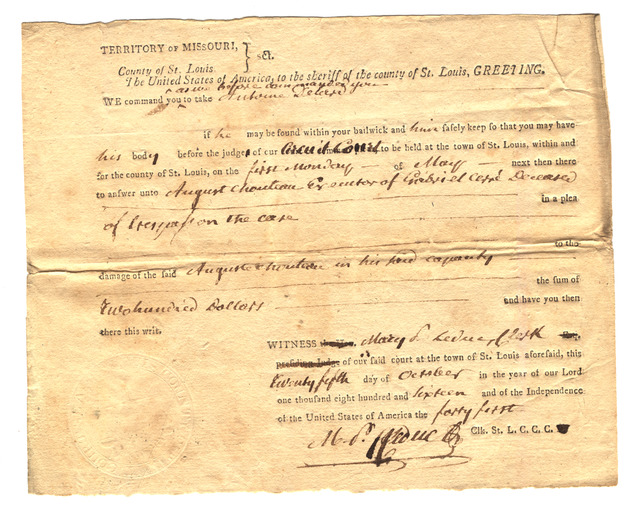 TERRITORY OF MISSOURI, } sct.
County of St. Louis.
The United States of America, to the sheriff of the county of St. Louis, GREETING.
as we before commanded you
WE command you to take Antoine
if he may be found within your bailwick and him safely keep so that you may have
his body before the judges of our Circuit Court to be held at the town of St. Louis, within and
for the county of St. Louis, on the first Monday of May next then there
to answer unto August Chouteau Executor of Gabriel Cerré Deceased
in a plea
of trespass on the case
to the
damage of the said Auguste Chouteau in his said capacity
the sum of
Two hundred Dollars and have you then
there this writ.
WITNESS Mary P. Leduc, Clerk
presiding Judge of our said court at the town of St. Louis aforesaid, this
twenty fifth day of October in the year of our Lord
one thousand eight hundred and sixteen and of the Independence
of the United States of America the forty first
M. P. Leduc Clk. St. L. C. C. C.